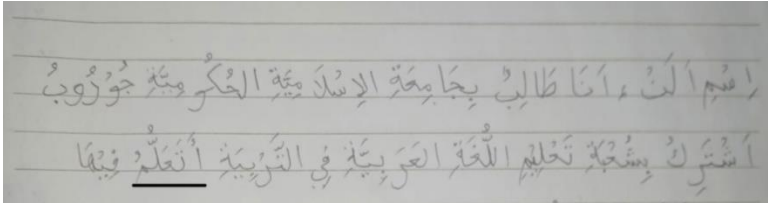 اِسْمِ اَلَنْ، اَنَا طَالِبٌ بِجَامِعَةِ الاِسْلَامِيَّةِ الحُكُومِيَّةِ جُوْرُوبْ
اَشْتَرِكُ بِشُعْبَةِ تَعْلِيْمِ اللُّغَةِ العَرَبِيَّةِ فِي التَّرْبِيَةِ أَتَعَلَّمُ فِيْهَا